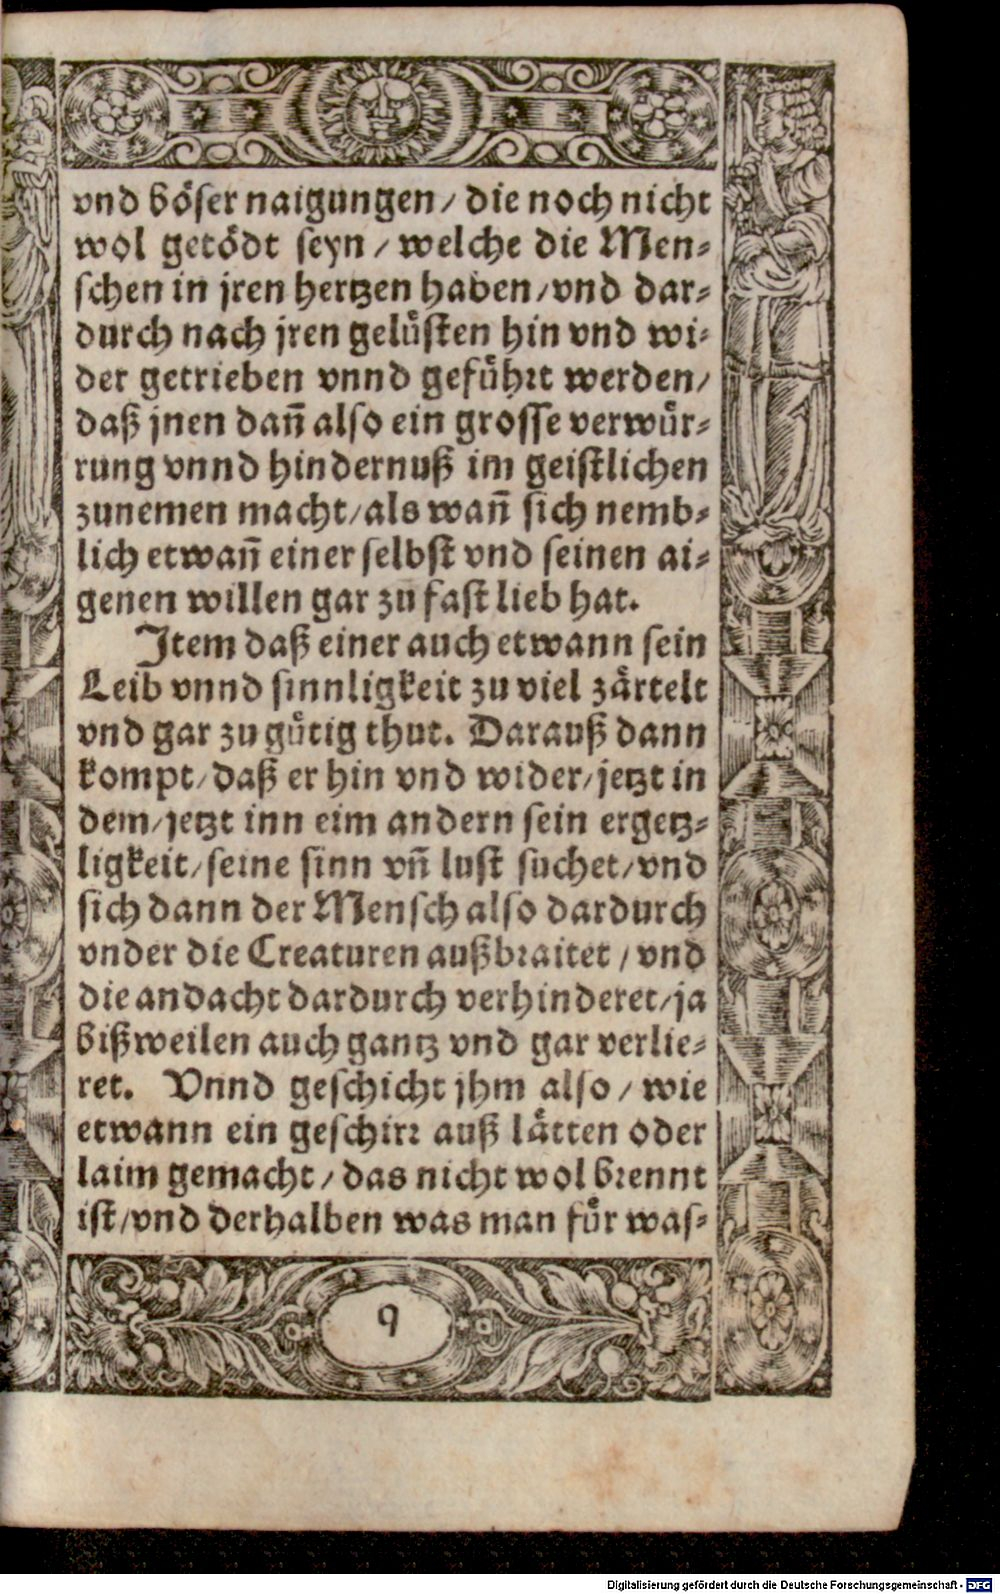 vnd böser naigungen / die noch nicht
wol getödt seyn / welche die Men-
schen in jren hertzen haben / vnd dar-
durch nach jren gelüsten hin vnd wi-
der getrieben vnnd geführt werden /
daß jnen dañ also ein grosse verwür-
rung vnnd hindernuß im geistlichen
zunemen macht / als wañ sich nemb-
lich etwañ einer selbst vnd seinen ai-
genen willen gar zu fast lieb hat.
Item daß einer auch etwann sein
Leib vnnd sinnligkeit zu viel zärtelt
vnd gar zu gütig thut. Darauß dann
kompt / daß er hin vnd wider / jetzt in
dem / jetzt inn eim andern sein ergetz-
ligkeit / seine sinn vñ lust suchet / vnd
sich dann der Mensch also dardurch
vnder die Creaturen außbraitet / vnd
die andacht dardurch verhinderet / ja
bißweilen auch gantz vnd gar verlie-
ret. Vnnd geschicht jhm also / wie
etwann ein geschirr auß lätten oder
laim gemacht / das nicht wol brennt
ist / vnd derhalben was man für was-
9
Digitalisierung gefördert durch die Deutsche Forschungsgemeinschaft - DFG